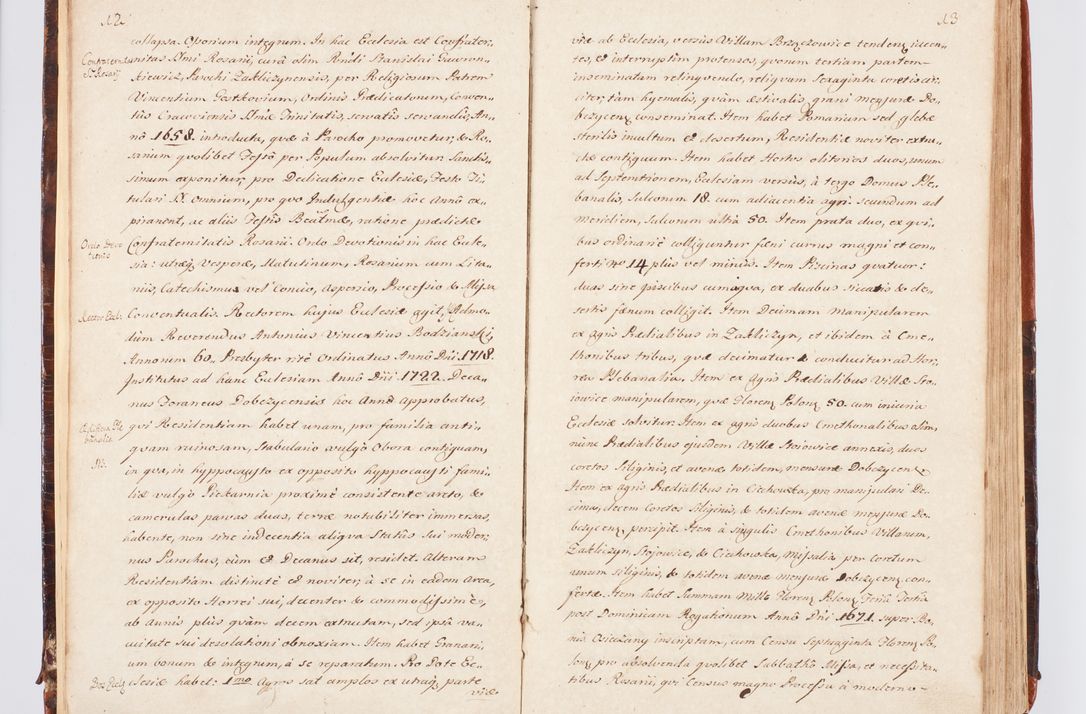 12
collapsa. Osorium integrum. In hac Ecclesia est Confrater,,
Confratern: S: Rosarij
unitas SSmi Rosarii, curâ olim Rndi Stanislai Gawron,,
kiewicz, Parochi Zakliczynensis, per Religiosum Patrem
Vincentium Postkovium, Ordinis Prædicatorum, Conven,,
tûs Cracoviensis SSmæ Trinitatis, servatis servandis, An,,
nô 1658. introducta, quæ à Parocho promovetur, & Ro,,
sarium quolibet Festô per Populum absolvitur. Sanctis,,
simum exponitur, pro Dedicatione Ecclesiæ, Festo Ti,,
tulari SS. Omnium, pro quo Indulgentiæ hôc Annô ex,,
pirarent, ac aliis Festis Beatmæ, ratione prædictæ
Ordo Devo tionis
Confraternitatis Rosarii. Ordo Devotionis in hac Eccle,,
sia: utræq Vesperæ, Matutinum, Rosarium cum Lita,,
niis, Catechismus vel Concio, aspersio, Processio & Missa
Rector Eccl:
Conventualis. Rectorem hujus Ecclesiæ agit, Admo,,
dum Reverendus Antonius Vincentius Bodzianski,
Annorum 60. Presbyter rite Ordinatus Annô Dni 1718.
Institutus ad hanc Ecclesiam Annô Dni 1722. Deca,,
nus Foraneus Dobczycensis hoc Annô approbatus,
Ædificia Ple banalia
qui Residentiam habet unam, pro familia anti,,
quam ruinosam, Stabulario vulgô Obora contiguam,
NB.
in qua, in hyppocausto ex opposito hyppocausti fami,,
liæ vulgô Piekarnia proximè consistente arcto, &
camerulas parvas duas, terræ notabiliter immersas,
habente, non sine indecentia aliqva Statûs Sui moder,,
nus Parochus, cùm & Decanus sit, residet. Alteram
Residentiam distinctè & noviter, à se in eadem Area,
ex opposito Horrei sui, decenter & commodissimè,
ab Annis plùs quàm decem extructam, sed ipsâ va,,
cuitate sui desolationi obnoxiam. Item habet Granari,,
um bonum & integrum, à se reparatum. Pro Dote Ec,,
Dos Eccl:
clesiæ habet: 1mo Agros sat amplos ex utraq parte
viæ
13
viæ ab Ecclesia, versùs Villam Brzączowice tenden, jacen,,
tes, & interruptim protensos, quorum tertiam partem
inseminatam relinquendo, reliquam Sexaginta coretis cir,,
citer, tàm hyemalis, quàm æstivalis grani mensuræ Do,,
bczycen conseminat. Item habet Pomarium sed glebæ
sterilis incultum & desertum, Residentiæ noviter extru,,
ctæ contiguum. Item habet Hortos olitorios duos, unum
ad Septentrionem, Ecclesiam versùs, à tergo Domus Ple,,
banalis, Sulcorum 18. cum adjacentia agri: secundum ad
meridiem, Sulcorum ultra 50. Item prata duo, ex qui,,
bus ordinariè colliguntur fœni currus magni et con,,
ferti no 14 plùs vel minùs. Item Piscinas quatuor:
duas sine piscibus cum aqva, ex duabus siccatis & de,,
sertis fœnum colligit. Item Decimam Manipularem
ex Agris Prædialibus in Zakliczyn, et ibidem à Cme,,
thonibus tribus, quæ decimatur & conducitur ad Hor,,
rea Plebanalia. Item ex Agris Prædialibus Villæ Sto,,
jowice manipularem, quæ Floren Polon 50. cum injuria
Ecclesiæ solvitur. Item ex agris duobus Cmethonalibus olim,
nunc Prædialibus ejusdem Villæ Stoiowice annexis, duos
coretos Siliginis, et avenæ totidem, mensuræ Dobczycen.
Item ex Agris Prædialibus in Czechowka, pro manipulari De,,
cima, decem Coretos Siliginis, & totidem avenæ mensuræ Do,,
bczycen, percipit. Item à singulis Cmethonibus Villarum,
Zakliczyn, Stojowice, & Ciechowka, Missalia per Coretum
unum siliginis, & totidem avenæ mensuræ Dobczycen con,,
fertæ. Item habet Summam Mille Floren Polon Feriâ Tertiâ
post Dominicam Rogationum Annô Dni 1671. super Bo,,
nis Osieczany inscriptam, cum Censu Septuaginta Floren Po,,
lon, pro absolvenda quolibet Sabbathô Missa, et necessita,,
tibus Rosarii, qui Census magno Processu à moderno